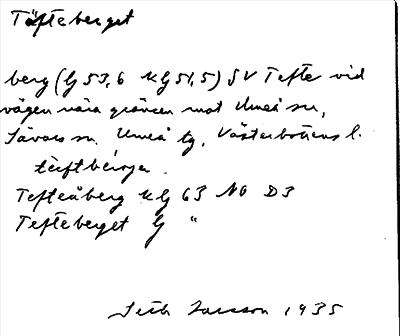 Täfteberget
berg (G 53,6 KG 51,5) SV Tefte vid
vägen nära gränsen mot Umeå sn,
Sävars sn. Umeå tg, Västerbottens l.
Tefteåberg KG 63 NO D3
Tefteberget G "
Larsson 1935